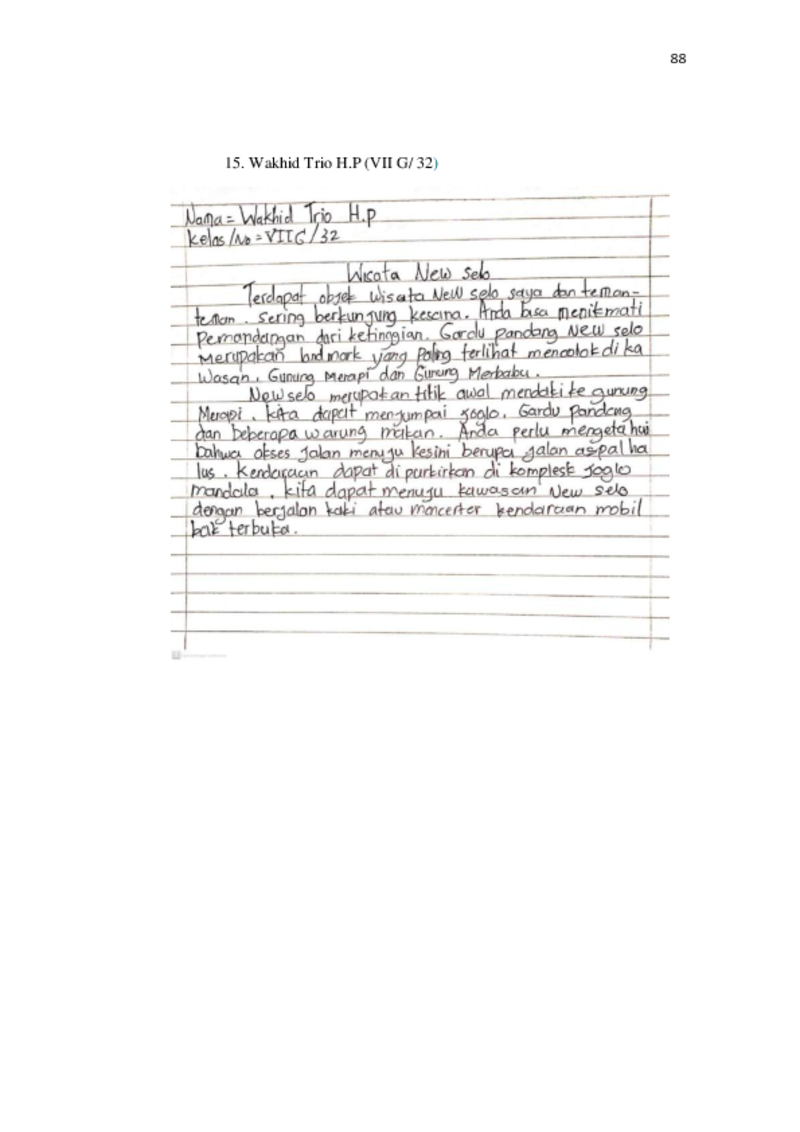 88
15. Wakhid Trio H.P (VII G/ 32)
Nama = Wakhid Trio H.p
Kelas/No = VII G/32
Wisata New selo
Terdapat objek wisata New selo saya dan teman-
teman. sering berkunjung kesana. Anda bisa menikmati
pemandangan dari ketinggian. Gardu pandang New selo
merupakan landmark yang paling terlihat mencolok di ka
wasan, Gunung Merapi dan Gunung Merbabu.
New selo merupakan titik awal mendaki ke gunung
Merapi. kita dapat menjumpai joglo. Gardu pandang
dan beberapa warung makan. Anda perlu mengeta hui
bahwa akses jalan menuju kesini berupa jalan aspal ha
lus. Kendaraan dapat di parkirkan di komplesk joglo
mandala, kita dapat menuju kawasan New selo
dengan berjalan kaki atau mencerter kendaraan mobil
bak terbuka.